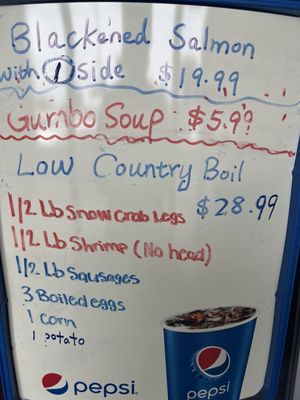 Blackened Salmon
with 1 side $19.99
Gumbo Soup $5.99
Low Country Boil
1/2 Lb Snow Crab Legs $28.99
1/2 Lb Shrimp (No head)
1/2 Lb Sausages
3 Boiled eggs
1 Corn
1 potato
pepsi.
pepsi